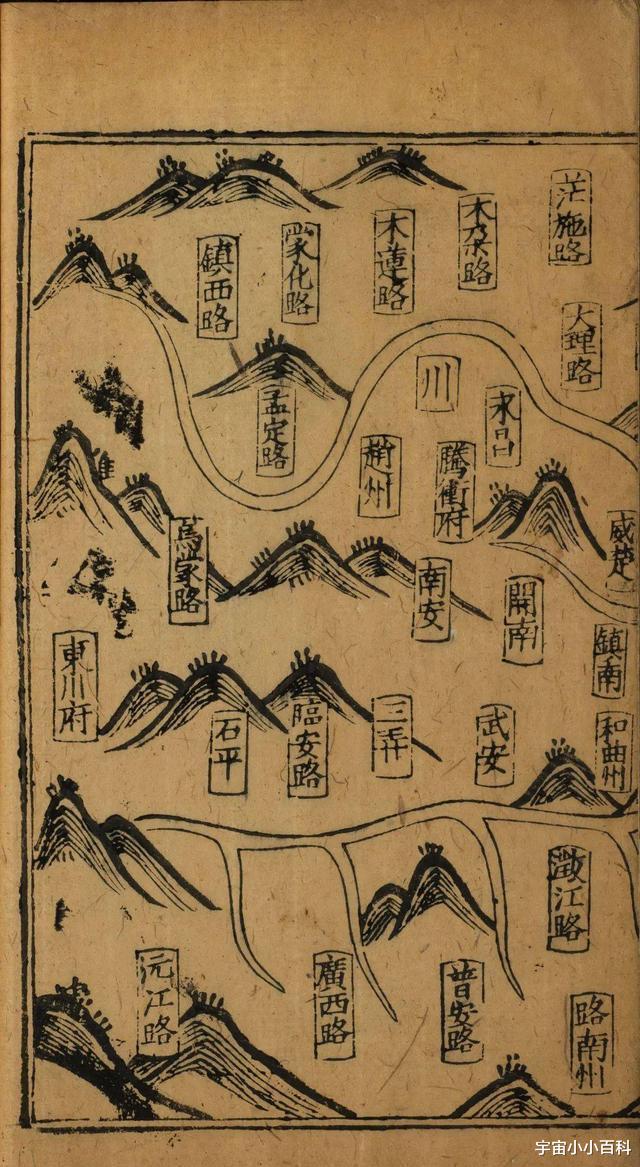 茫施路
木朵路
木蓮路
蒙化路
鎮西路
大理路
川
永昌
孟定路
趙州
騰衝府
威楚
南安
開南
鎮南
東川府
石平
臨安路
三弄
武安
和曲州
澂江路
元江路
廣西路
普安路
路南州
宇宙小小百科